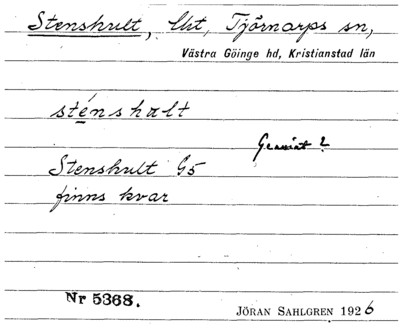 Stenshult, Lht, Tjörnarps sn,
Västra Göinge hd, Kristianstad län
sténshalt
Gammalt?
Stenshult G5
finns kvar
Nr 5368.
JÖRAN SAHLGREN 1926